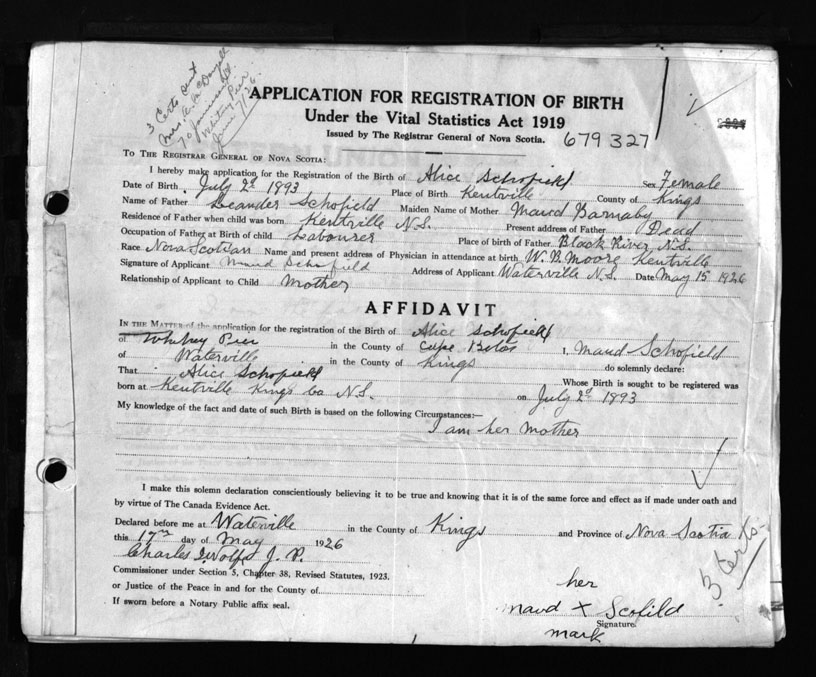 3 Certs sent
Mrs. A. McDougall
70
Whitney Pier
June 7/26.
APPLICATION FOR REGISTRATION OF BIRTH
Under the Vital Statistics Act 1919
Issued by The Registrar General of Nova Scotia.
679327
TO THE REGISTRAR GENERAL OF NOVA SCOTIA:
I hereby make application for the Registration of the Birth of Alice Schofield Sex Female
Date of Birth July 2d 1893 Place of Birth Kentville County of Kings
Name of Father Leander Schofield Maiden Name of Mother Maud Barnaby
Residence of Father when child was born Kentville N.S. Present address of Father Dead
Occupation of Father at Birth of child Labourer Place of birth of Father Black River N.S.
Race Nova Scotian Name and present address of Physician in attendance at birth W. B. Moore Kentville
Signature of Applicant Maud Schofield Address of Applicant Waterville N.S. Date May 15 1926
Relationship of Applicant to Child Mother
AFFIDAVIT
IN THE MATTER of the application for the registration of the Birth of Alice Schofield
of Whitney Pier in the County of Cape Breton I, Maud Schofield
of Waterville in the County of Kings do solemnly declare:
That Alice Schofield Whose Birth is sought to be registered was
born at Kentville Kings Co N.S. on July 2d 1893
My knowledge of the fact and date of such Birth is based on the following Circumstances:—
I am her Mother
I make this solemn declaration conscientiously believing it to be true and knowing that it is of the same force and effect as if made under oath and
by virtue of The Canada Evidence Act.
Declared before me at Waterville in the County of Kings and Province of Nova Scotia
this 17th day of May 1926
Charles DWolfe J. P.
Commissioner under Section 5, Chapter 38, Revised Statutes, 1923.
or Justice of the Peace in and for the County of
If sworn before a Notary Public affix seal.
3 Certs-
her
Maud X Scofild
Signature.
mark